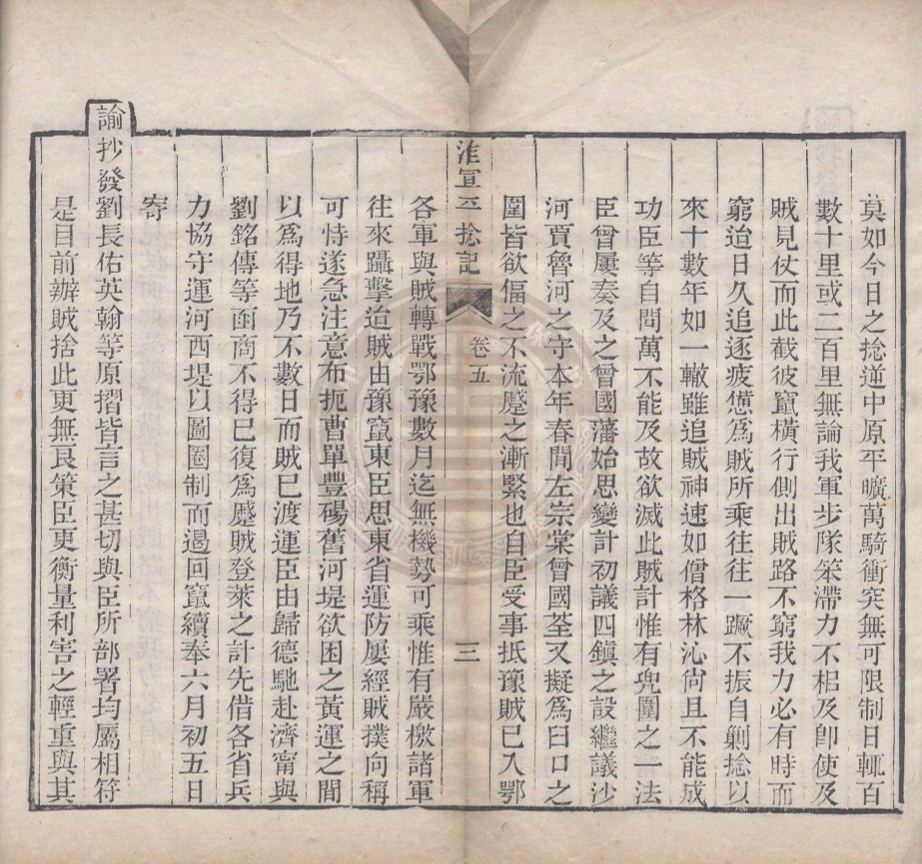 莫如今日之捻逆中原平曠萬騎衝突無可限制日輒百
數十里或二百里無論我軍步隊笨滯力不相及卽使及
賊見仗而此截彼竄橫行側出賊路不窮我力必有時而
窮迨日久追逐疲憊爲賊所乘往往一蹶不振自剿捻以
來十數年如一轍雖追賊神速如僧格林沁尙且不能成
功臣等自問萬不能及故欲滅此賊計惟有兜圍之一法
臣曾屢奏及之曾國藩始思變計初議四鎭之設繼議沙
河賈魯河之守本年春間左宗棠曾國荃又擬爲臼口之
圍皆欲偪之不流蹙之漸緊也自臣受事抵豫賊已入鄂
淮軍平捻記 卷五 三
各軍與賊轉戰鄂豫數月迄無機勢可乘惟有嚴檄諸軍
往來躡擊迨賊由豫竄東臣思東省運防屢經賊撲向稱
可恃遂急注意布扼曹單豐碭舊河堤欲困之黃運之間
以爲得地乃不數日而賊已渡運臣由歸德馳赴濟甯與
劉銘傳等面商不得已復爲蹙賊登萊之計先借各省兵
力協守運河西堤以圖圈制而遏回竄續奉六月初五日
寄
諭抄發劉長佑英翰等原摺皆言之甚切與臣所部署均屬相符
是目前辦賊捨此更無良策臣更衡量利害之輕重與其